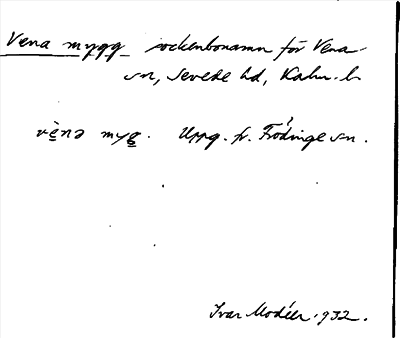 Vena mygg sockenbonamn för Vena
sn, Sevede hd, Kalm. l.
vènə myg. Uppg. fr. Frödinge sn.
Ivar Modéer. 1932.